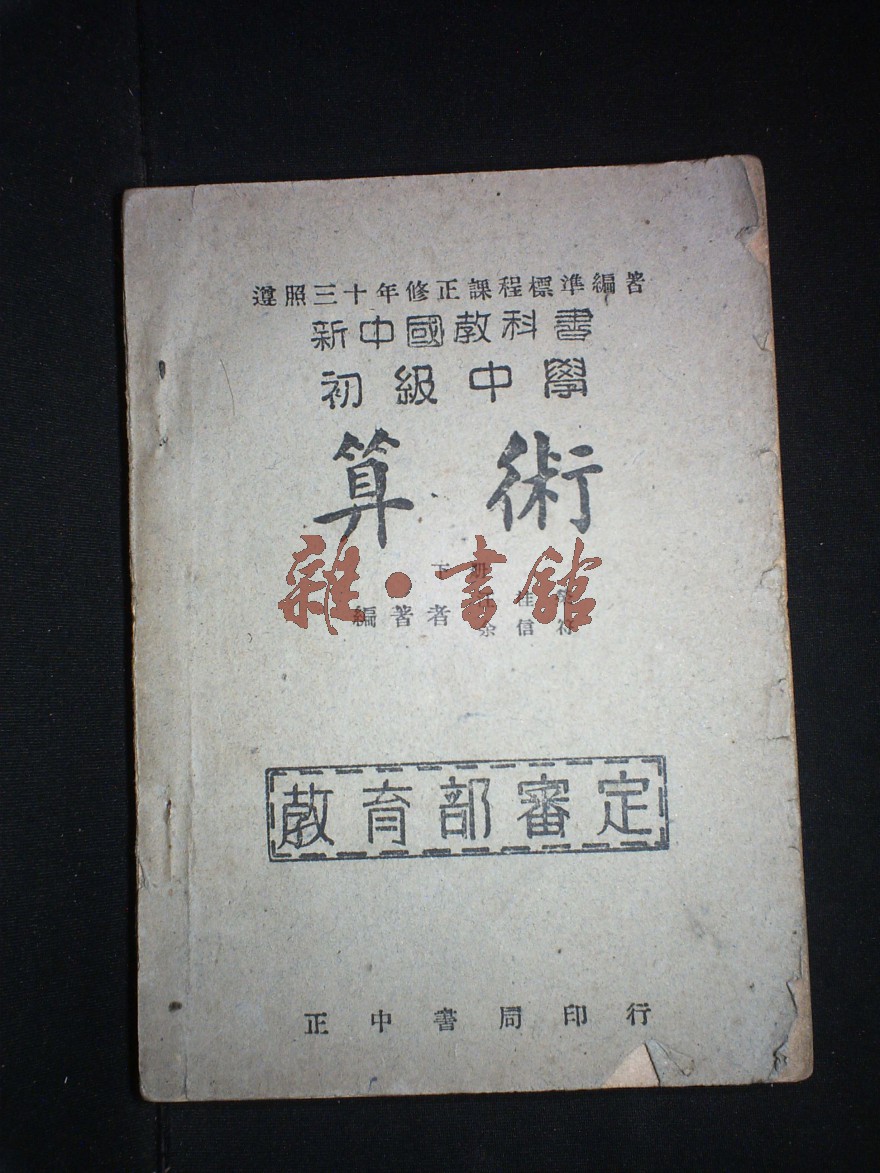 遵照三十年修正課程標準編著
新中國教科書
初級中學
算術
下册
編著者
余信符
雜·書館
教育部審定
正中書局印行